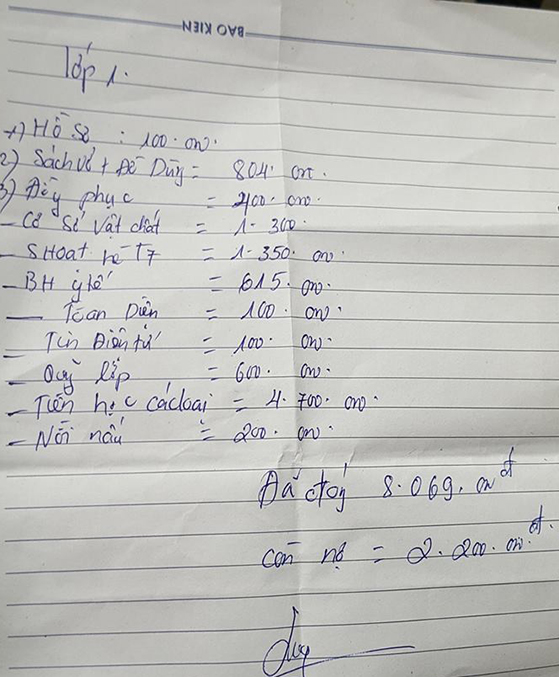 BAO KIEN
Lớp 1.
1) Hồ Sơ : 100. 000.
2) Sách vở + Đồ Dùng = 804. 000.
3) Đồng phục = 400. 000.
- Cơ Sở vật chất = 1. 300.
- SHoạt hè T7 = 1. 350. 000.
- BH y tế = 615. 000.
- Toàn Diện = 100. 000.
- Tin Điện tử = 100. 000.
- Quỹ lớp = 600. 000.
- Tiền học các loại = 4. 700. 000.
- Nồi nấu = 200. 000.
Đã đóng 8. 069. 000 đ
Còn nợ = 2. 200. 000. đ.